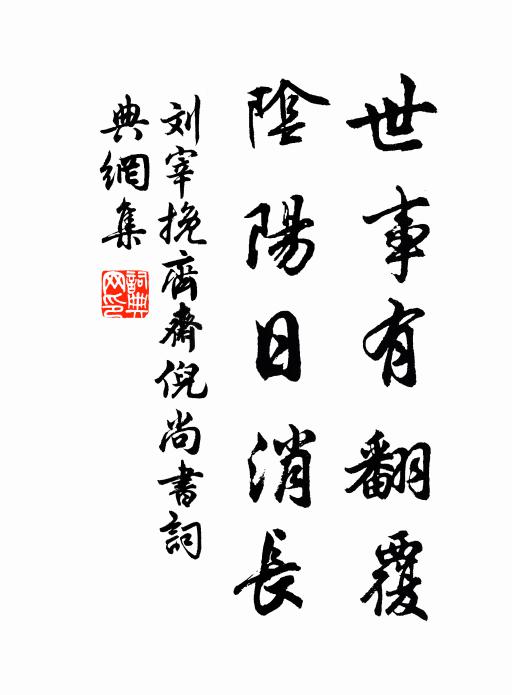 世事有翻覆
陰陽日消長
刘宰挽齊齋倪尚書詞
典網集
詞典
网印